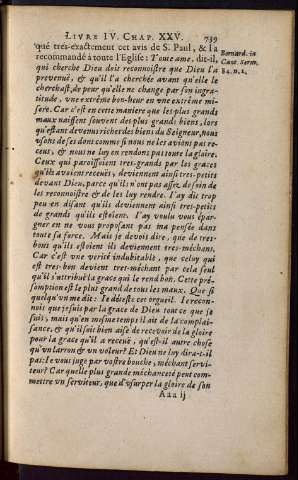 LIVRE IV. CHAP. XXV. 739
qué tres-exactement cet avis de S. Paul, & l'a
recommandé à toute l'Eglise: Toute ame, dit-il,
qui cherche Dieu doit reconnoistre que Dieu l'a
prevenuë, & qu'il l'a cherchée avant qu'elle le
cherchast, de peur qu'elle ne change par son ingra-
titude, une extréme bon-heur en une extréme mi-
sere. Car c'est en cette maniere que les plus grands
maux naissent souvent des plus grands biens, lors
qu'estant devenus riches des biens du Seigneur, nous
usons de ses dons comme si nous ne les avions pas re-
ceus, & nous ne luy en rendons pas toute la gloire.
Ceux qui paroissoient tres-grands par les graces
qu'ils avoient receuës, deviennent ainsi tres-petits
devant Dieu, parce qu'ils n'ont pas assez de soin de
les reconnoistre & de les luy rendre. J'ay dit trop
peu en disant qu'ils deviennent ainsi tres-petits
de grands qu'ils estoient. J'ay voulu vous épar-
gner en ne vous proposant pas ma pensée dans
toute sa force. Mais je devois dire, que de tres-
bons qu'ils estoient ils deviennent tres-méchans.
Car c'est une verité indubitable, que celuy qui
est tres-bon devient tres-méchant par cela seul
qu'il s'attribuë la grace qui le rend bon. Cette pré-
somption est le plus grand de tous les maux. Que si
quelqu'un me dit: Je déteste cet orgueil. Je recon-
nois que je suis par la grace de Dieu tout ce que je
suis, mais qu'en mesme temps il ait de la complai-
sance, & qu'il soit bien aise de recevoir de la gloire
pour la grace qu'il a receuë, qu'est-il autre chose
qu'un larron & un voleur? Et Dieu ne luy dira-t-il
pas: Je vous juge par vostre bouche, méchant servi-
teur? Car quelle plus grande méchanceté peut com-
mettre un serviteur, que d'usurper la gloire de son
Aaa ij
Bernard. in
Cant. Serm.
84. n. 2.